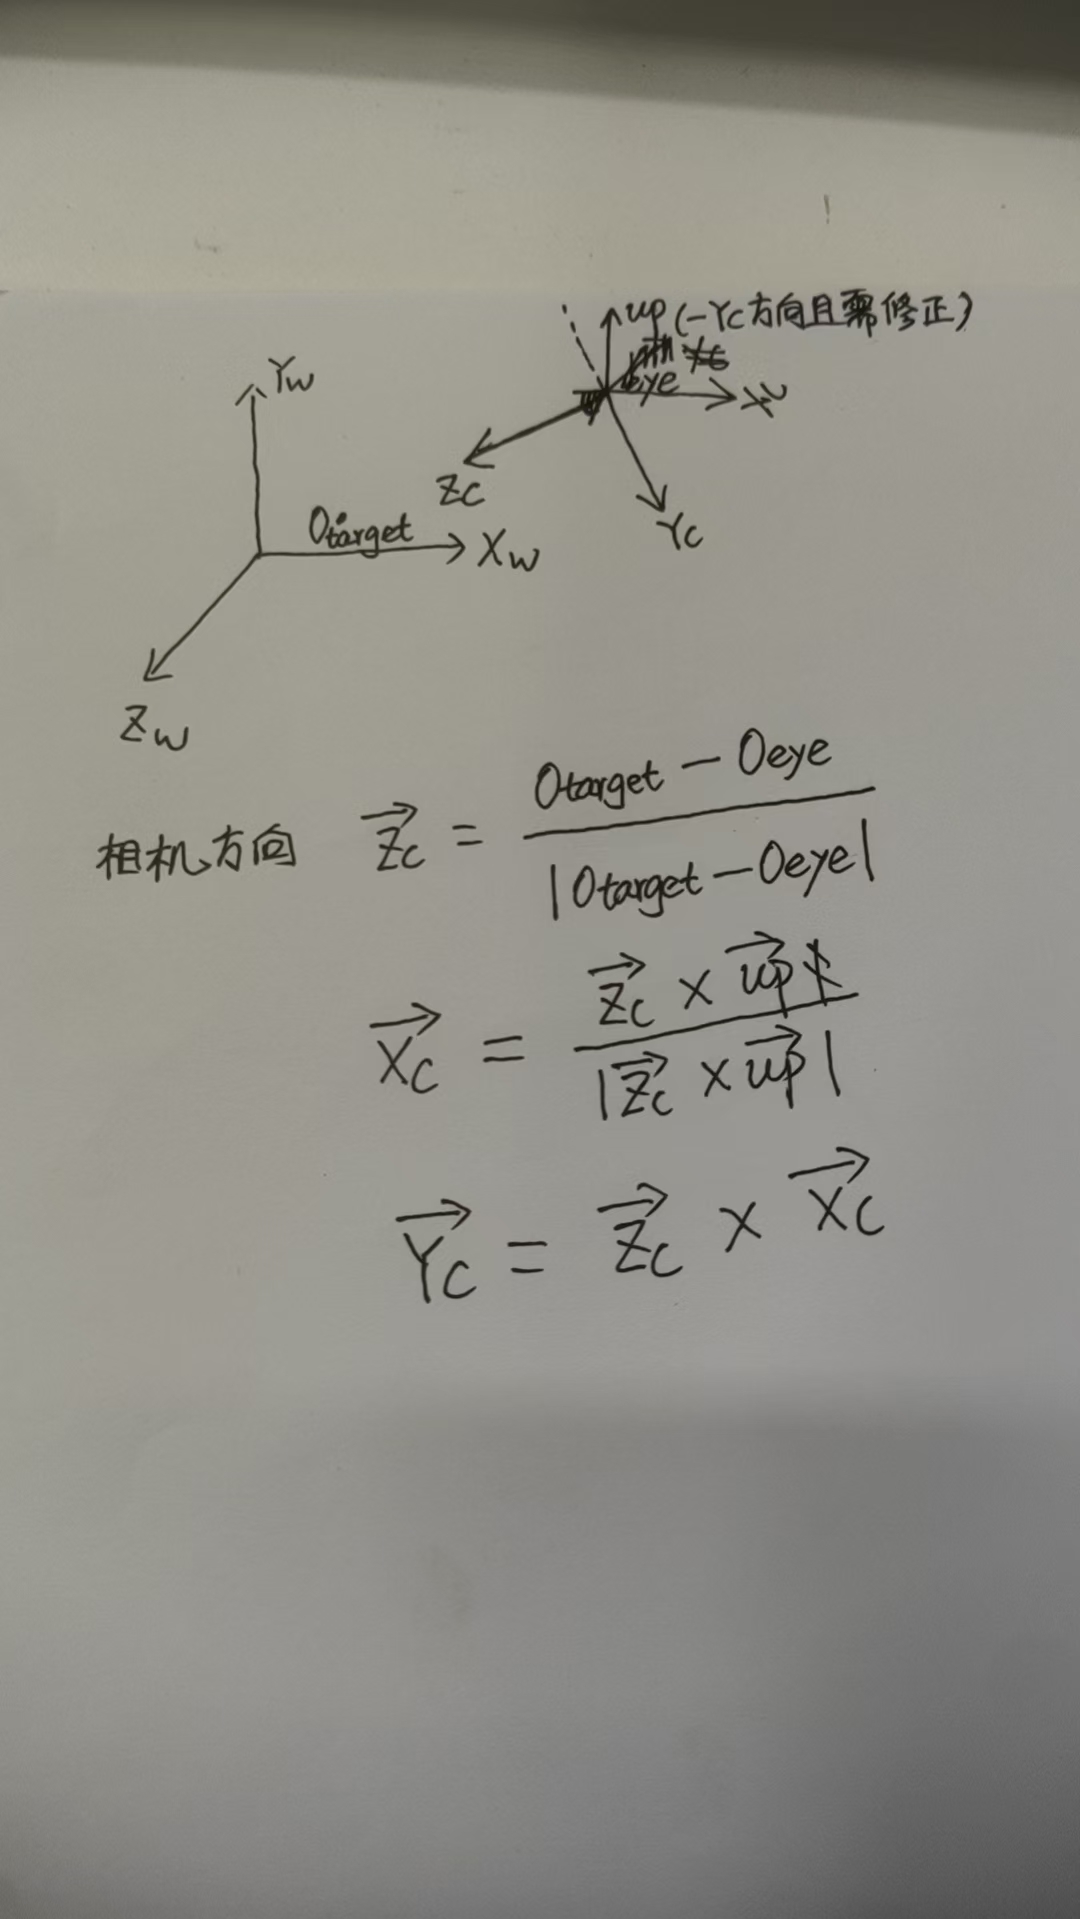 up (-Yc方向且需修正)
eye
Yw
Xc
Zc
Otarget
Xw
Yc
Zw
相机方向 Zc = Otarget - Oeye
|Otarget - Oeye|
Xc = Zc × up
|Zc × up|
Yc = Zc × Xc